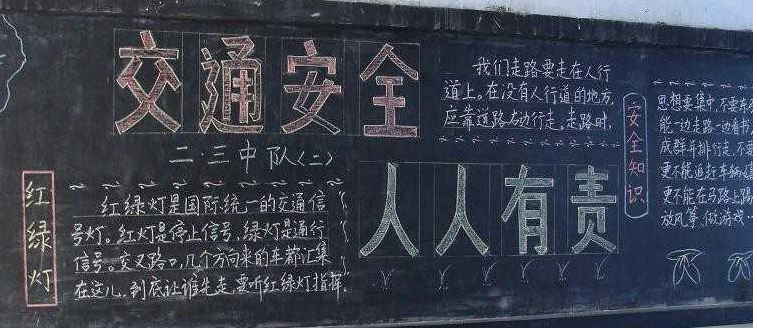 交通安全
二.三中队(二)
人人有责
红绿灯
红绿灯是国际统一的交通信
号灯。红灯是停止信号,绿灯是通行
信号。交叉路口,几个方向来的车都汇集
在这儿,到底让谁先走,要听红绿灯指挥
我们走路要走在人行
道上。在没有人行道的地方,
应靠道路右边行走。走路时,
安全知识
思想要集中,不要东
能一边走路一边看书,
成群并排行走,不要
更不能追赶车辆嬉
更不能在马路上踢
放风筝、做游戏…